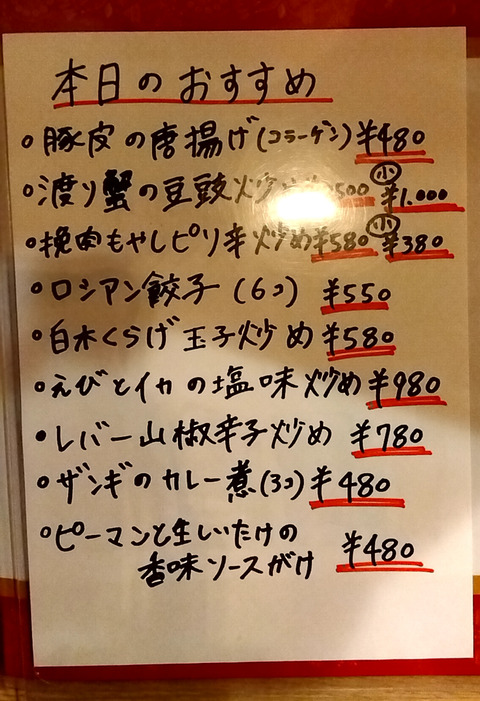 本日のおすすめ
豚皮の唐揚げ(コラーゲン) ¥480
渡り蟹の豆豉炒め 500 小 ¥1.000
挽肉もやしピリ辛炒め ¥580 小 ¥380
ロシアン餃子(6コ) ¥550
白木くらげ玉子炒め ¥580
えびとイカの塩味炒め ¥980
レバー山椒辛子炒め ¥780
ザンギのカレー煮(3コ) ¥480
ピーマンと生しいたけの
香味ソースがけ ¥480